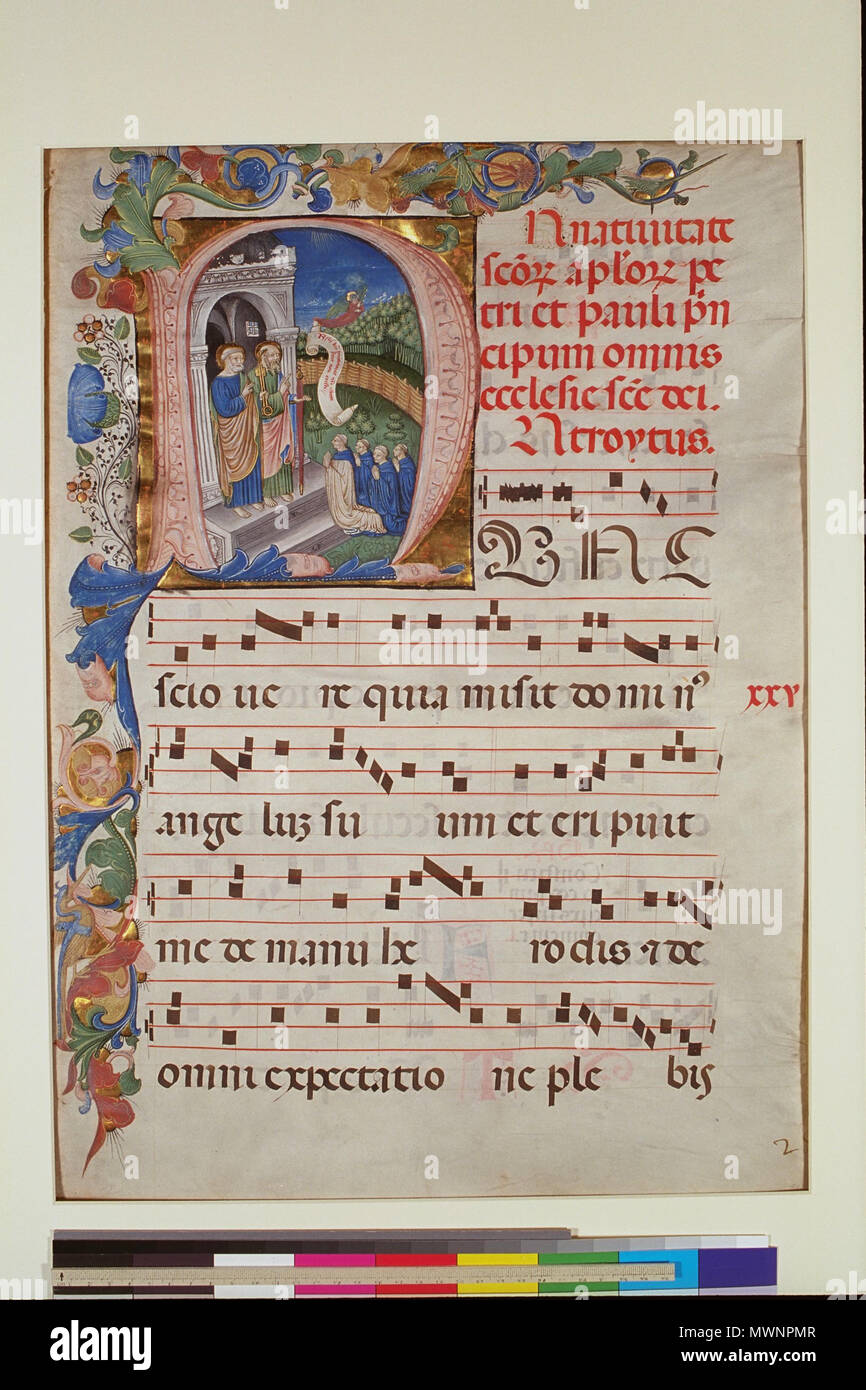 In natiuitate
scõrꝝ aplõrꝝ pe
tri et pauli p̃n
cipum omnis
ecclesie scẽ dei.
Introytus.
NVNC
scio ue re quia misit domi nꝰ
xxv
ange luʒ su um et eripuit
me de manu he rodis ⁊ de
omni expectatio ne ple bis
2
alamy
Image ID: MWNPMR
www.alamy.com